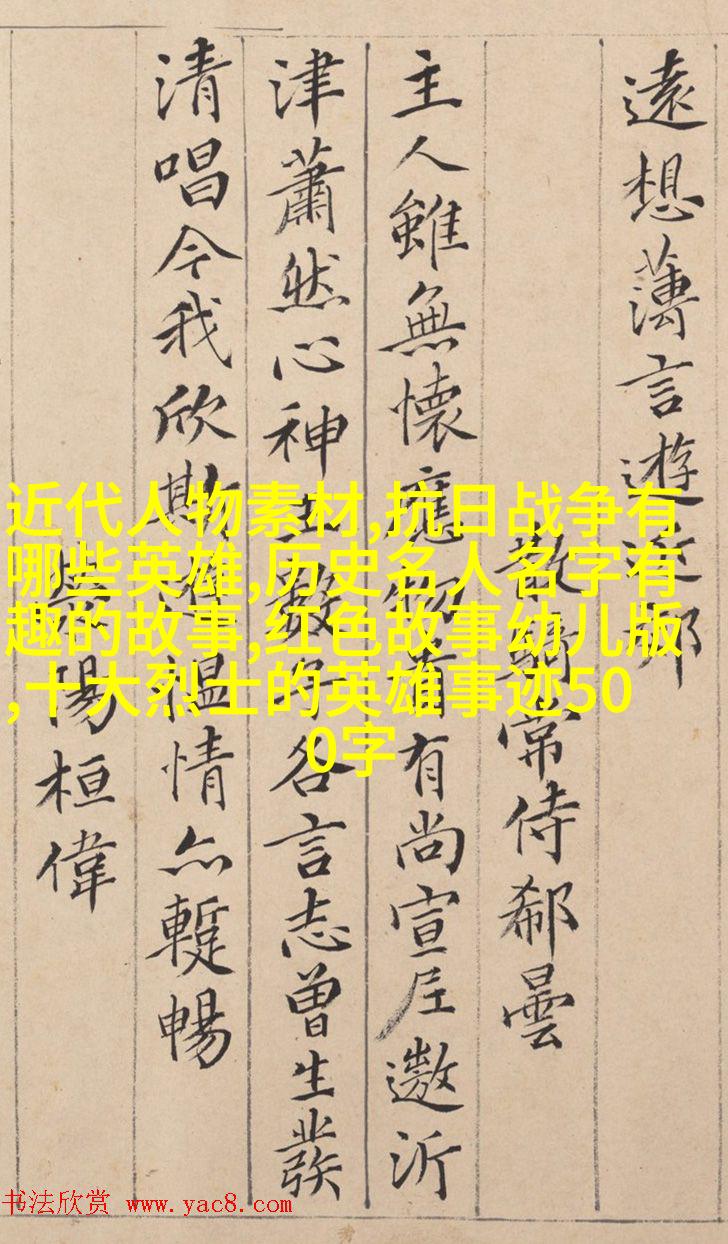 遠想薄言遊近郊
散騎常侍郗曇
主人雖無懷應物貴有尚宣尼遨沂
津蕭然心神王數子各言志曾生發
清唱今我欣斯遊慍情亦蹔暢
滎陽桓偉
近代人物素材,抗日战争有
哪些英雄,历史名人名字有
趣的故事,红色故事幼儿版
,十大烈士的英雄事迹50
0字
书法欣赏 www.yac8.com